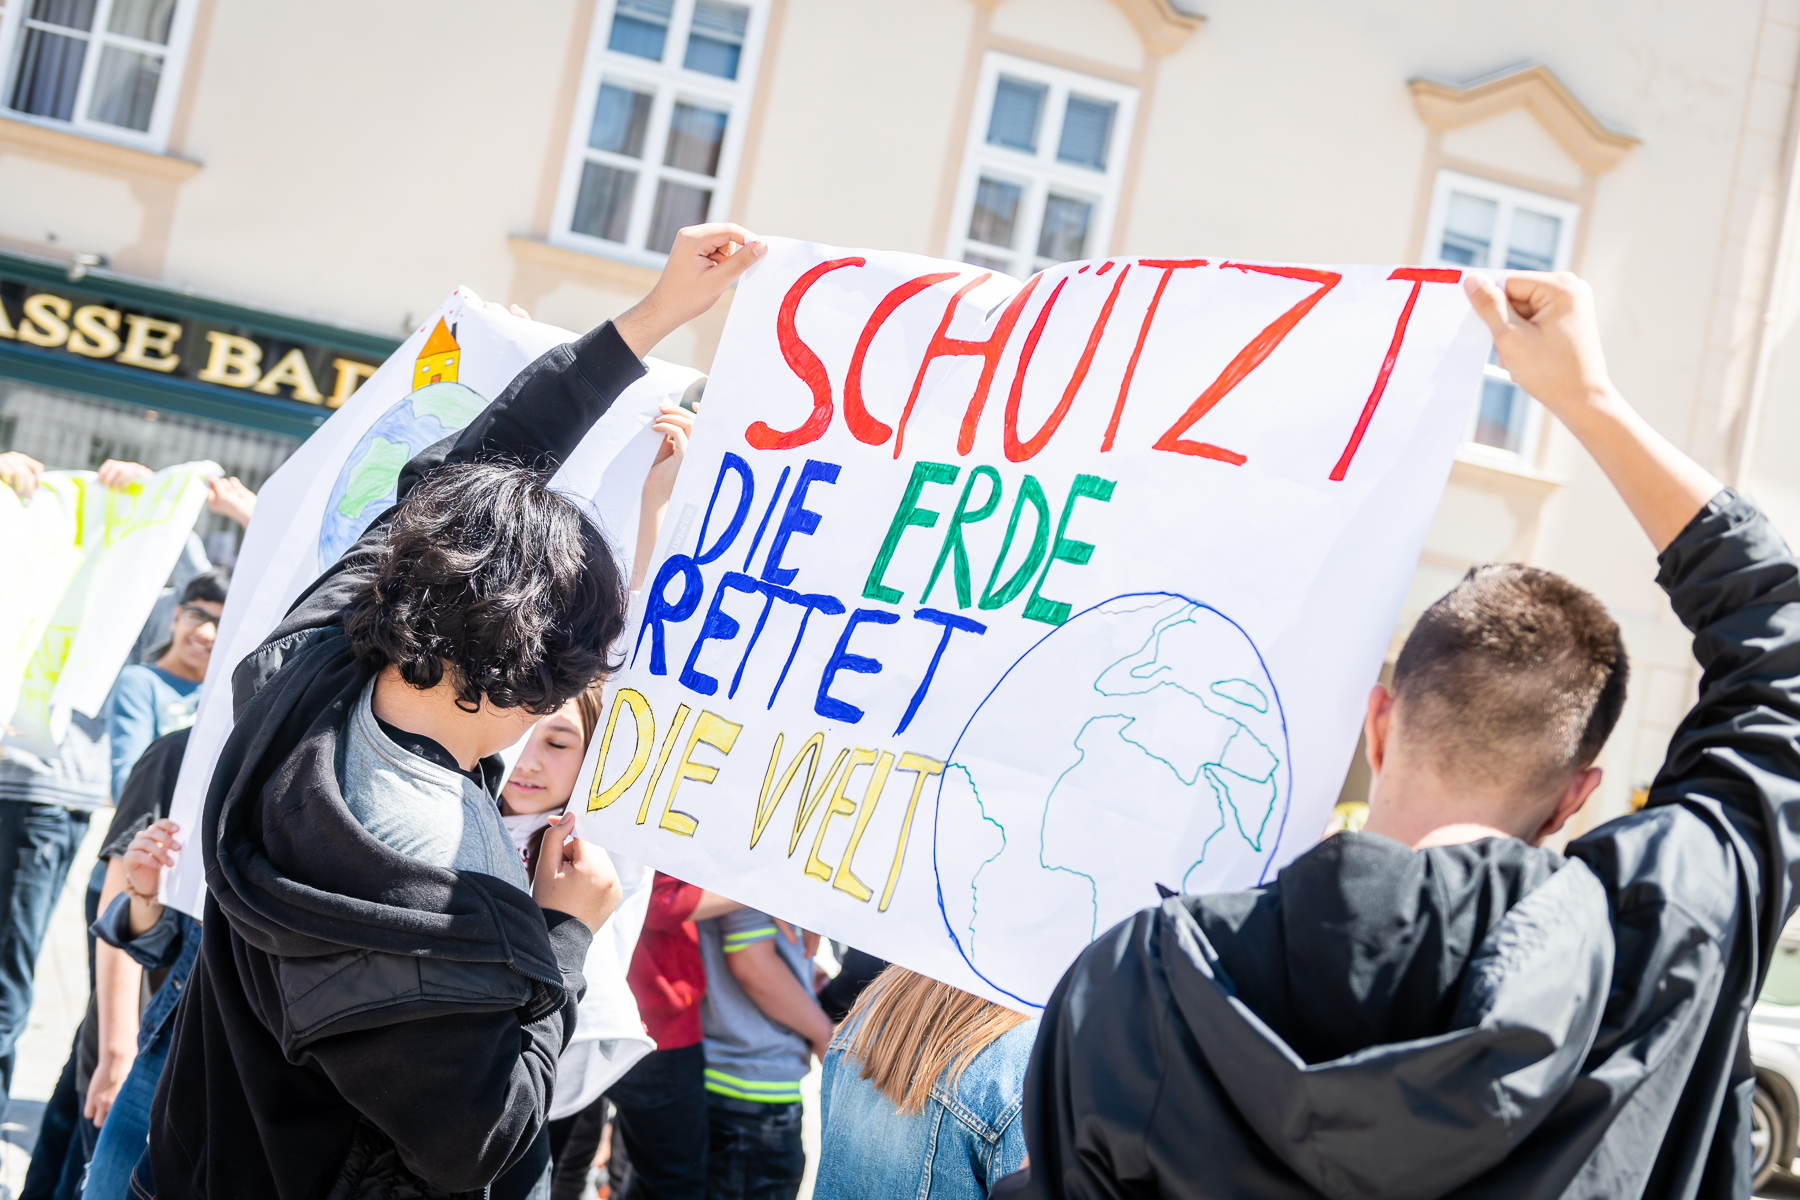 ASSE BAD
SCHÜTZT
DIE ERDE
RETTET
DIE WELT